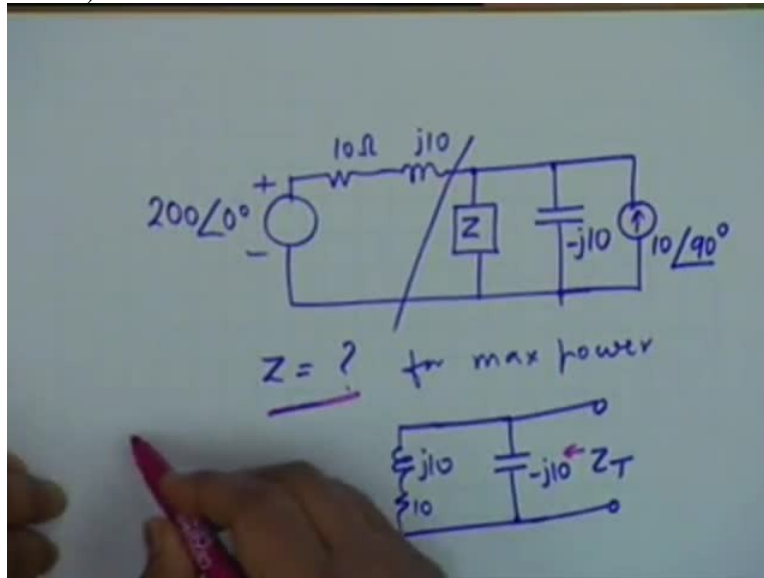 10Ω j10
+
200∠0°
-
Z
-j10
10∠90°
Z = ? for max power
j10
10
-j10
Z_T